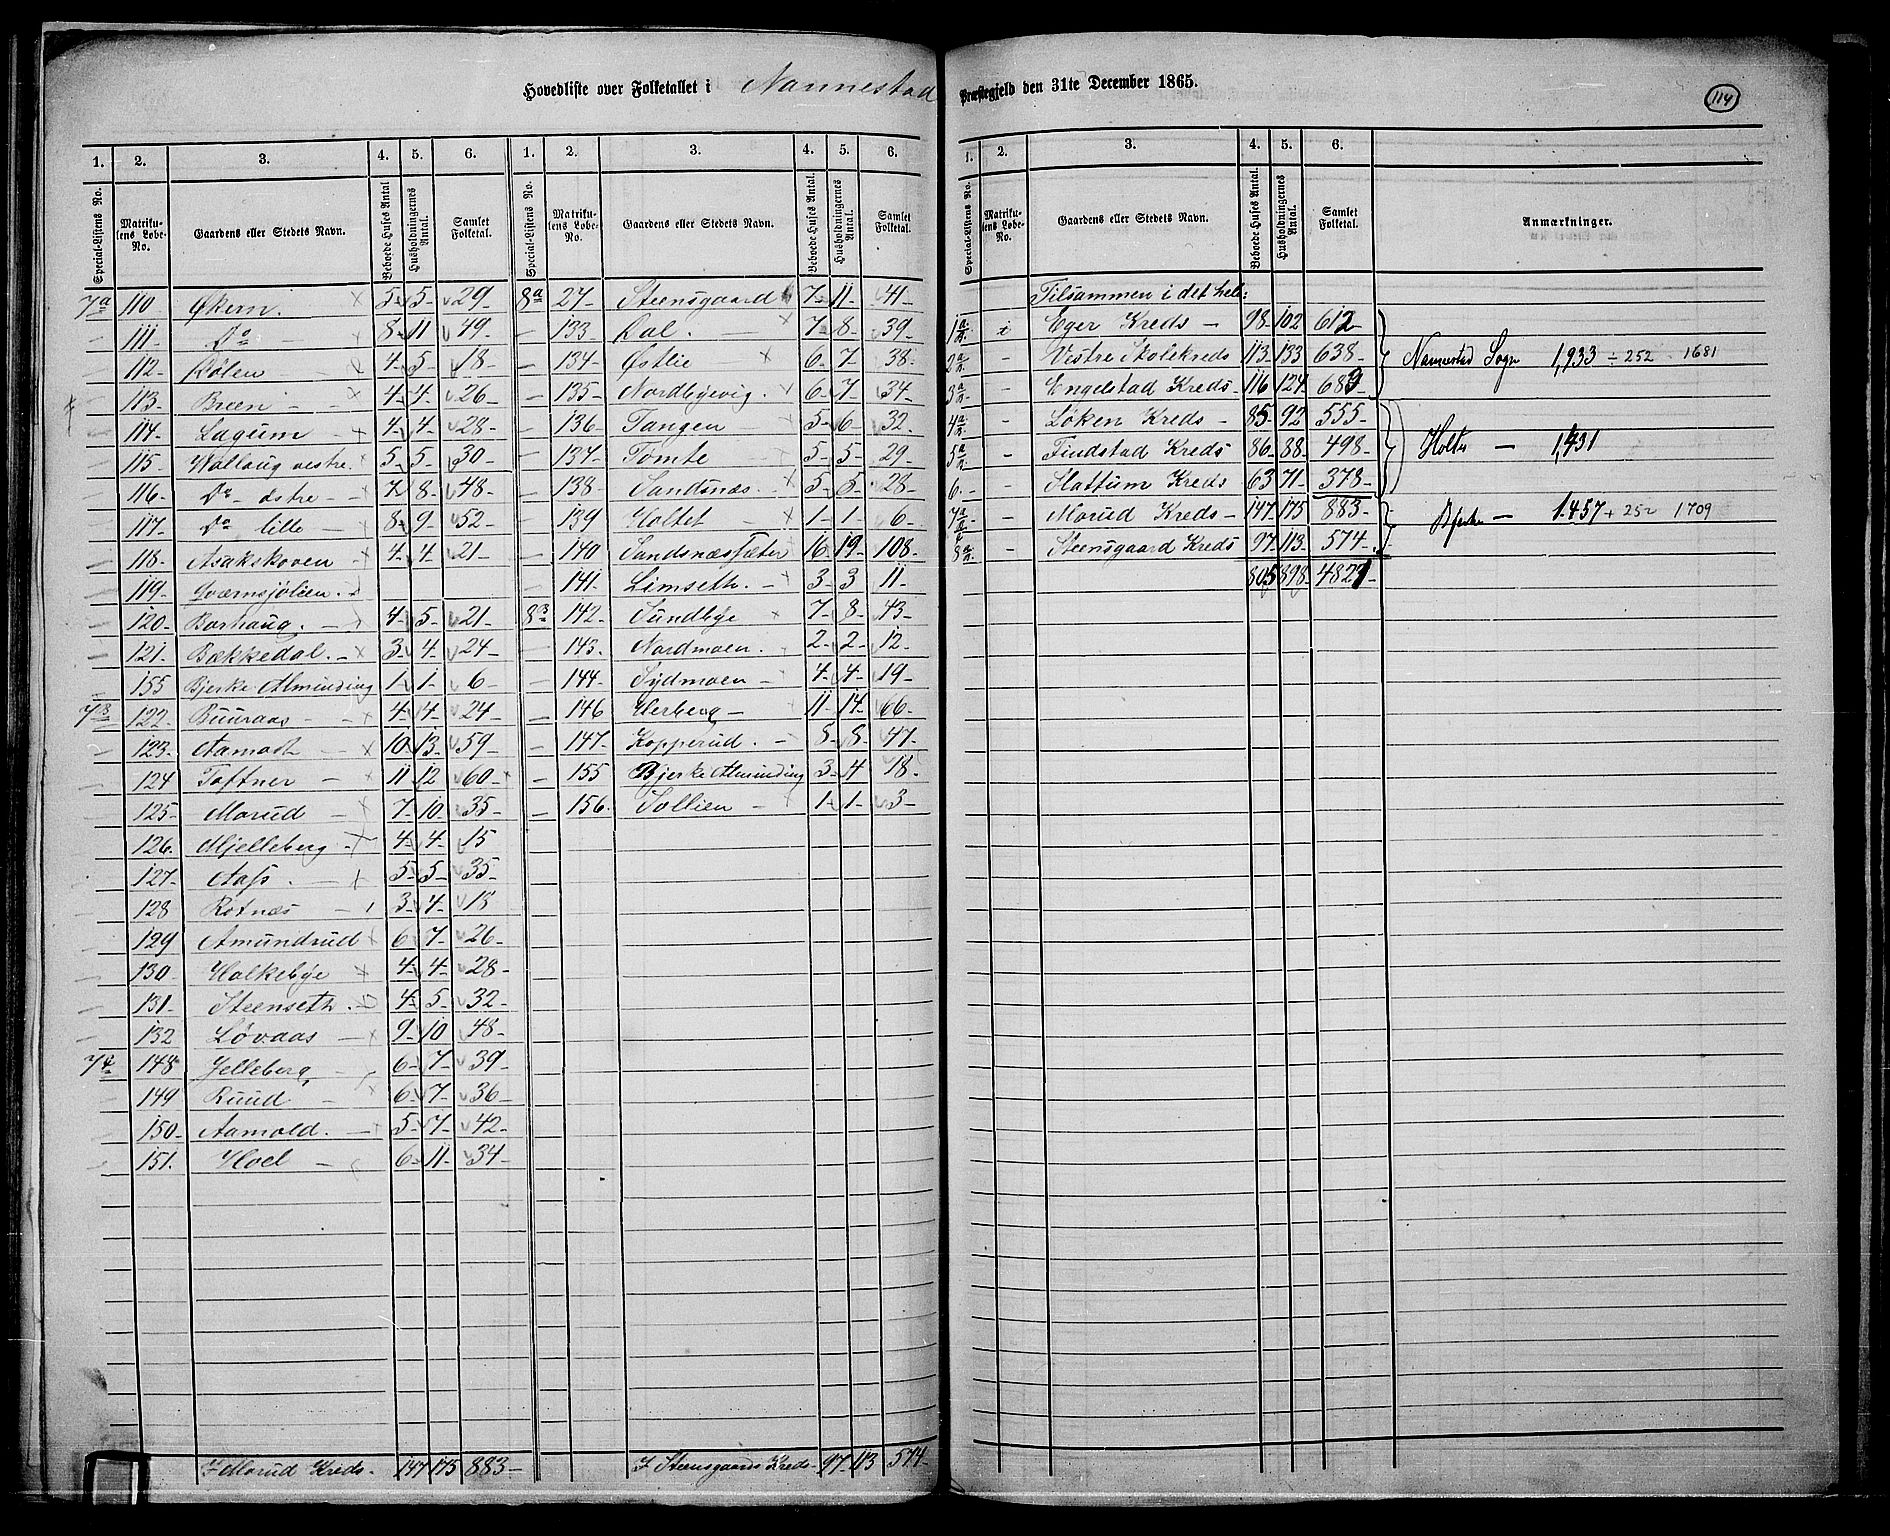 Hovedliste over Folketallet i Nannestad Præstegjeld den 31te December 1865.
114
1. 2. 3. 4. 5. 6. 1. 2. 3. 4. 5. 6.
Special-Listens No. Matrikulens Løbe-No. Gaardens eller Stedets Navn. Beboede Huses Antal Husholdningernes Antal. Samlet Folketal. Special-Listens No. Matrikulens Løbe-No. Gaardens eller Stedets Navn. Beboede Huses Antal. Husholdningernes Antal. Samlet Folketal.
7a 110 Økern. 5 5 29
111 Do 8 11 49
112 Kolen 4 5 18
113 Breen 4 4 26
114 Lagum 4 4 28
115 Wollaug vestre 5 5 30
116 Do østre 7 8 48
117 Do lille 8 9 52
118 Asakskoven 4 4 21
119 Qværnsjölien.
120 Borhaug. 4 5 21
121 Bækkedal. 3 4 24
155 Bjerke Alminding 1 1 6
7 122 Buuraas 4 4 24
123 Aamodt 10 13 59
124 Toftner 11 12 60
125 Morud 7 10 35
126 Mjelleberg 4 4 15
127 Aass. 5 5 35
128 Rotnæs 3 4 18
129 Amundrud 6 7 26
130 Holkebye 4 4 28
131 Steenseth. 4 5 32
132 Løvaas 9 10 48
7 148 Jelleberg 6 7 39
149 Ruud 6 7 36
150 Aamold. 5 7 42
151. Hoel 6 11 34
I Morud Kreds. 147 175 883
8a 27 Steensgaard 7 11 41
133 Dal. 7 8 39
134 Østlie 6 7 38
135 Nordbyevig. 6 7 34
136 Tangen 5 6 32
137 Tomte 5 5 29
138 Sandsnæs. 5 5 28
139 Holtet 1 1 6
140 Sandsnæssæter 16 19 108
141. Limseth. 3 3 11
8 142 Sundbye 7 8 43
143. Nordmoen. 2 2 12
144 Sydmoen 4 4 19
146 Herberg 11 14 66
147. Kopperud. 8 8 47
155 Bjerke Alminding 3 4 18
156. Sollien 1 1 3
I Steensgaards Kreds 97 113 574
1. 2. 3. 4. 5. 6.
Special-Listens No. Matrikulens Løbe-No. Gaardens eller Stedets Navn. Beboede Huses Antal. Husholdningernes Antal. Samlet Folketal. Anmærkninger.
Tilsammen i det hele:
1 i Eger Kreds 98 102 612
2 Vestre Skolekreds 113 133 638 Nannestad Sogn 1,933 ÷ 252 1681
3 Engelstad Kreds 116 124 683
4 Løken Kreds 85 92 555
5 Findstad Kreds 86 88 498 Holter 1,431
6. Slattum Kreds 63 71 378
7 Morud Kreds 147 175 883 Bjerke 1.457 + 252 1709
8 Steensgaard Kreds 97 113 574
805 898 4821